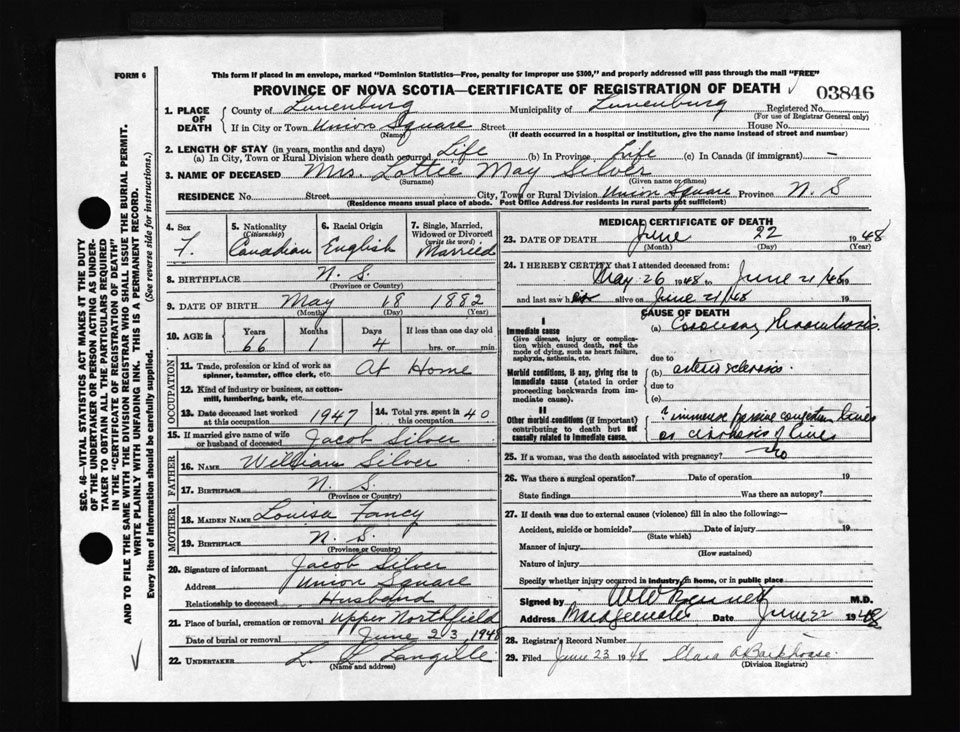 FORM 6
This form if placed in an envelope, marked "Dominion Statistics—Free, penalty for improper use $300," and properly addressed will pass through the mail "FREE"
PROVINCE OF NOVA SCOTIA—CERTIFICATE OF REGISTRATION OF DEATH
03846
1. PLACE OF DEATH County of Lunenburg Municipality of Lunenburg Registered No.
(For use of Registrar General only)
If in City or Town Union Square Street House No.
(Name) (If death occurred in a hospital or institution, give the name instead of street and number)
2. LENGTH OF STAY (in years, months and days)
(a) In City, Town or Rural Division where death occurred Life (b) In Province Life (c) In Canada (if immigrant) —
3. NAME OF DECEASED Mrs. Lottie May Silver
(Surname) (Given name or names)
RESIDENCE No. Street City, Town or Rural Division Union Square Province N. S
(Residence means usual place of abode. Post Office Address for residents in rural parts not sufficient)
4. Sex F.
5. Nationality (Citizenship) Canadian
6. Racial Origin English
7. Single, Married, Widowed or Divorced (write the word) Married
8. BIRTHPLACE N. S.
(Province or Country)
9. DATE OF BIRTH May 18 1882
(Month) (Day) (Year)
10. AGE in Years Months Days If less than one day old
66 1 4 hrs. or min.
OCCUPATION
11. Trade, profession or kind of work as spinner, teamster, office clerk, etc. At Home
12. Kind of industry or business, as cotton-mill, lumbering, bank, etc.
13. Date deceased last worked at this occupation 1947 14. Total yrs. spent in 40 this occupation
15. If married give name of wife or husband of deceased Jacob Silver
FATHER
16. NAME William Silver
17. BIRTHPLACE N. S.
(Province or Country)
MOTHER
18. MAIDEN NAME Louisa Fancy
19. BIRTHPLACE N. S.
(Province or Country)
20. Signature of informant Jacob Silver
Address Union Square
Relationship to deceased Husband
21. Place of burial, cremation or removal Upper Northfield
Date of burial or removal June 23, 1948
22. UNDERTAKER L. L. Langille
(Name and address)
MEDICAL CERTIFICATE OF DEATH
23. DATE OF DEATH June 22 1948
(Month) (Day) (Year)
24. I HEREBY CERTIFY that I attended deceased from:
May 26 1948 to June 21/48 19
and last saw her alive on June 21/48 19
CAUSE OF DEATH
I
Immediate cause
Give disease, injury or complication which caused death, not the mode of dying, such as heart failure, asphyxia, asthenia, etc.
(a) Coronary Thrombosis.
due to
Morbid conditions, if any, giving rise to immediate cause (stated in order proceeding backwards from immediate cause).
(b) arteriosclerosis
due to
(c)
II
Other morbid conditions (if important) contributing to death but not causally related to immediate cause.
? immense passive congestion liver
or cirrhosis of liver
25. If a woman, was the death associated with pregnancy? no
26. Was there a surgical operation? Date of operation 19
State findings Was there an autopsy?
27. If death was due to external causes (violence) fill in also the following:—
Accident, suicide or homicide? Date of injury 19
(State which)
Manner of injury
(How sustained)
Nature of injury
Specify whether injury occurred in industry, in home, or in public place
Signed by M.D.
Address Bridgewater Date June 22 1948
28. Registrar's Record Number
29. Filed June 23 1948 Clara A Barkhouse.
(Division Registrar)
SEC. 46—VITAL STATISTICS ACT MAKES IT THE DUTY
OF THE UNDERTAKER OR PERSON ACTING AS UNDER-
TAKER TO OBTAIN ALL THE PARTICULARS REQUIRED
IN THE "CERTIFICATE OF REGISTRATION OF DEATH"
AND TO FILE THE SAME WITH THE DIVISION REGISTRAR WHO SHALL ISSUE THE BURIAL PERMIT.
WRITE PLAINLY WITH UNFADING INK. THIS IS A PERMANENT RECORD.
Every item of information should be carefully supplied. (See reverse side for instructions.)